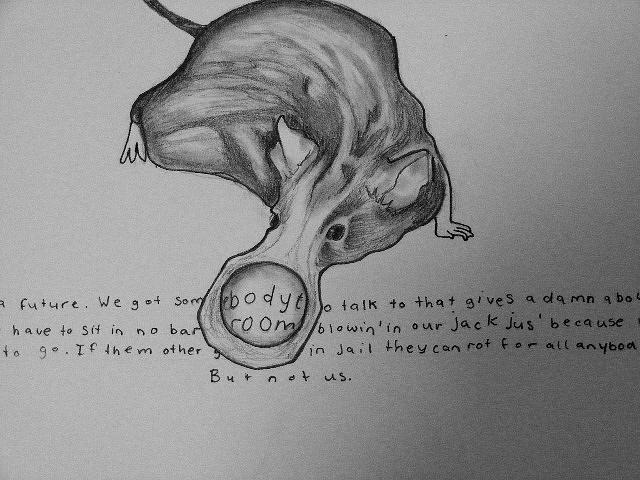 a future. We got somebody to talk to that gives a damn abou
have to sit in no bar room blowin' in our jack jus' because
to go. If them other g in jail they can rot for all anyboa
But not us.